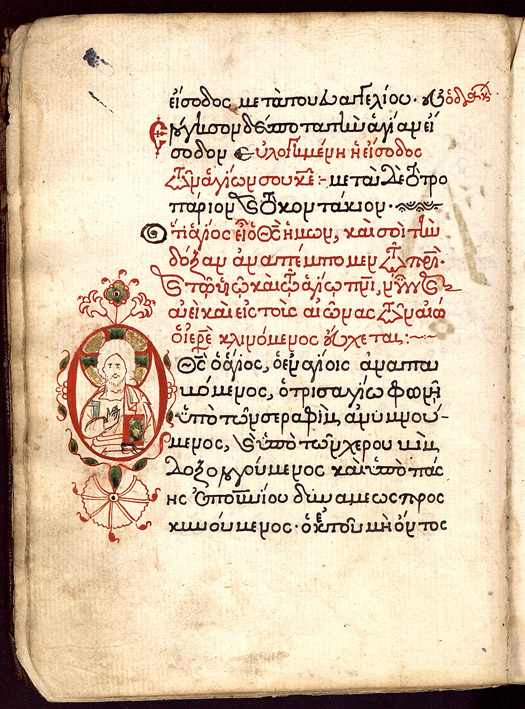 εἴσοδος μετὰ που δαγγελίου. ὁ δὲ
Εὐλόγησον δέσποτα τὴν ἁγίαν εἴ
σοδον Εὐλογημένη ἡ εἴσοδος
τῶν ἁγίων σου κε:- μετα δὲ τὸ τρο
πάριον καὶ τὸ κοντάκιον.
Ὅτι ἅγιος εἶ ὁ θς ἡμων, καὶ σοὶ τὴν
δόξαν ἀναπέμπομεν τῶ πρὶ.
καὶ τῶ υἱῶ καὶ τῶ ἁγίω πνι, νῦν καὶ
ἀεὶ καὶ εἰς τοὺς αἰῶνας τῶν αἰώ
ὁ ἱερεὺς κλινόμενος εὔχεται:~
Ὁ θς ὁ ἅγιος, ὁ ἐν ἁγίοις ἀναπαυ
όμενος, ὁ τρισαγίω φωνῆ
ὑπὸ τῶν σεραφὶμ, ἀνυμνού
μενος, καὶ ὑπὸ τῶν χερουβὶμ
δοξολογούμενος καὶ ὑπὸ πάσ
ης ἐπουνίου δυνάμεως προς
κυνούμενος. ὁ ἐκ τοῦ μὴ ὄντος